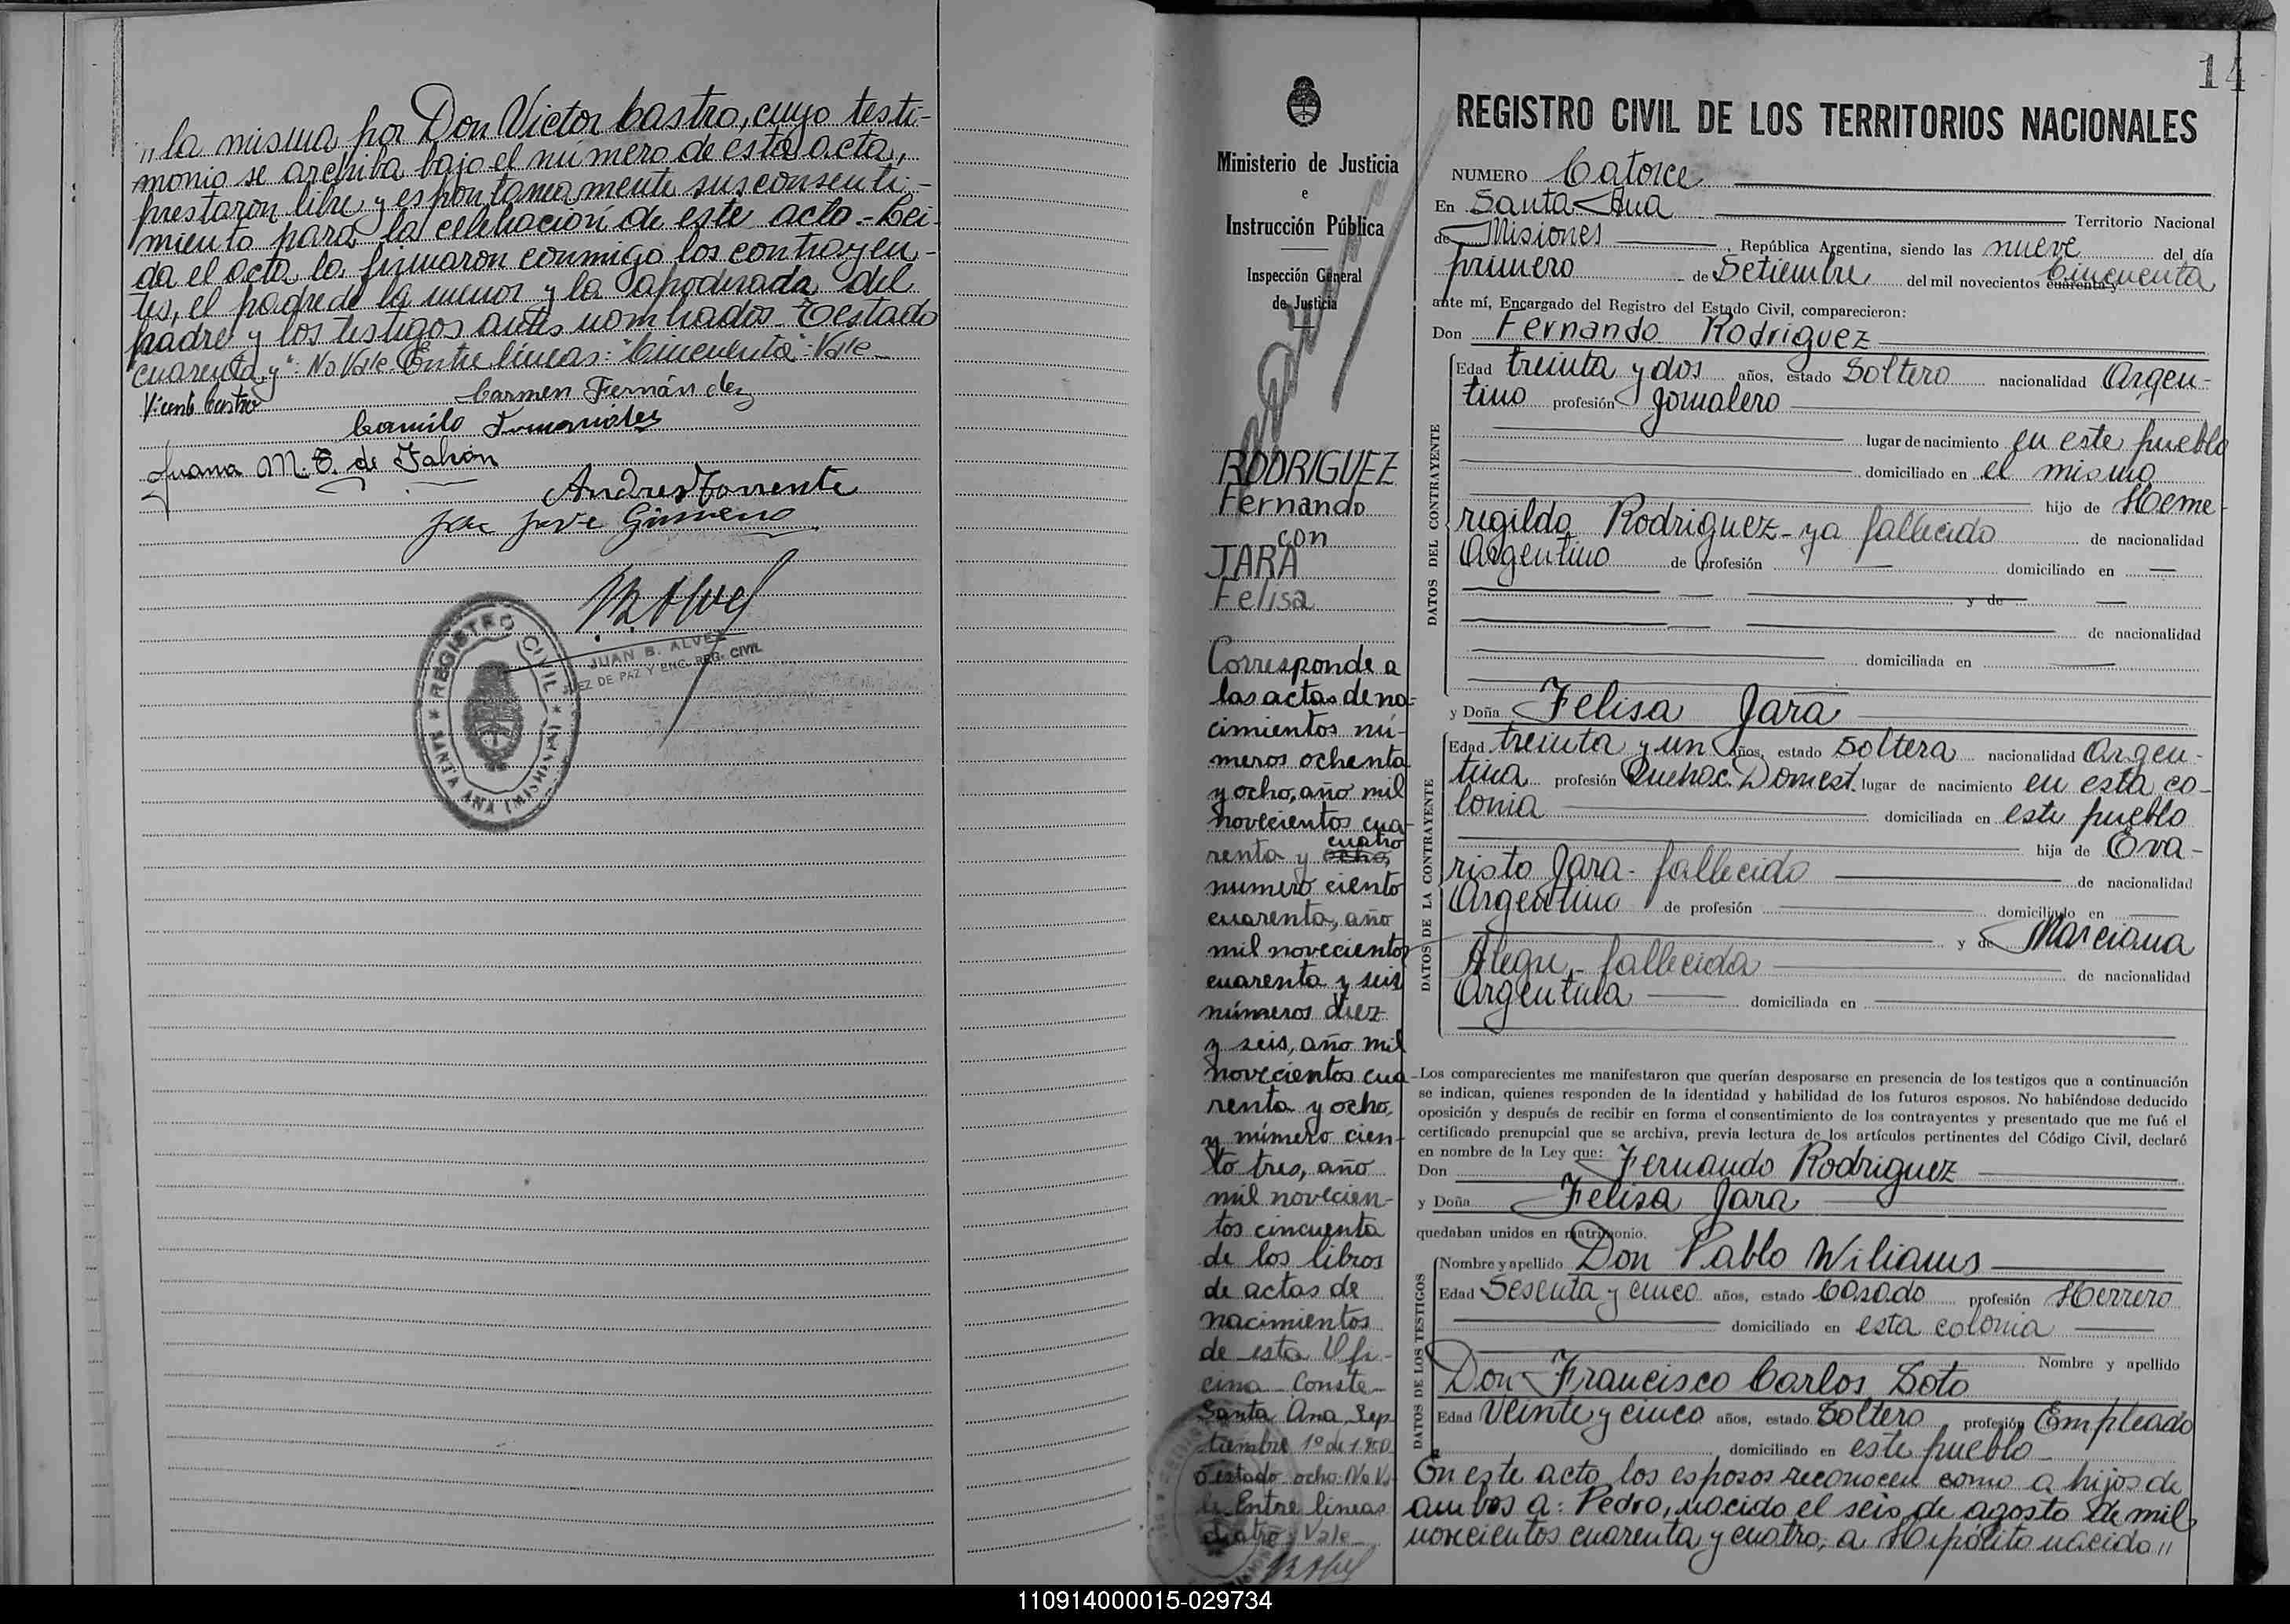 "la misma por Don Victor Castro, cuyo testi-
monio se archiva bajo el número de esta acta,
prestaron libre y espontaneamente sus consenti-
miento para la celebracion de este acto - Lei-
da el acta, la firmaron conmigo los contrayen-
tes, el padre de la menor y la apoderada del
padre y los testigos antes nombrados. Testado
cuarenta y": No Vale. Entre líneas: "Cincuenta": Vale
Vicente Castro
Carmen Fernández
Camilo
Juana M. E. de
Andres Torrente
Jose Gimeno
JUAN B. ALVEZ
JUEZ DE PAZ Y ENC. REG. CIVIL
REGISTRO CIVIL
SANTA ANA (MISIONES)
14
Ministerio de Justicia
e
Instrucción Pública
Inspección General
de Justicia
RODRIGUEZ
Fernando
con
JARA
Felisa
Corresponde a
las actas de na-
cimientos nú-
meros ochenta
y ocho, año mil
novecientos cua-
cuatro
renta y ocho,
numero ciento
cuarenta, año
mil novecientos
cuarenta y seis
números diez
y seis, año mil
novecientos cua-
renta y ocho,
y número cien-
to tres, año
mil novecien-
tos cincuenta
de los libros
de actas de
nacimientos
de esta Ofi-
cina. Conste
Santa Ana, Sep-
tiembre 1º de 1.950
Testado ocho: No Va-
le Entre lineas
cuatro: Vale
REGISTRO CIVIL DE LOS TERRITORIOS NACIONALES
NUMERO Catorce
En Santa Ana Territorio Nacional
de Misiones, República Argentina, siendo las nueve del día
primero de Setiembre del mil novecientos cuarenta y Cincuenta
ante mí, Encargado del Registro del Estado Civil, comparecieron:
Don Fernando Rodriguez
DATOS DEL CONTRAYENTE
Edad treinta y dos años, estado Soltero nacionalidad Argen-
tino profesión Jornalero
lugar de nacimiento en este pueblo
domiciliado en el mismo
hijo de Heme-
regildo Rodriguez - ya fallecido de nacionalidad
Argentino de profesión domiciliado en
y de
de nacionalidad
domiciliada en
y Doña Felisa Jara
DATOS DE LA CONTRAYENTE
Edad treinta y un años, estado Soltera nacionalidad Argen-
tina profesión Quehac. Domést. lugar de nacimiento en esta co-
lonia domiciliada en este pueblo
hija de Eva-
risto Jara - fallecido de nacionalidad
Argentino de profesión domiciliado en
y de Marciana
Alegre - fallecida de nacionalidad
Argentina domiciliada en
Los comparecientes me manifestaron que querían desposarse en presencia de los testigos que a continuación
se indican, quienes responden de la identidad y habilidad de los futuros esposos. No habiéndose deducido
oposición y después de recibir en forma el consentimiento de los contrayentes y presentado que me fué el
certificado prenupcial que se archiva, previa lectura de los artículos pertinentes del Código Civil, declaré
en nombre de la Ley que:
Don Fernando Rodriguez
y Doña Felisa Jara
quedaban unidos en matrimonio.
DATOS DE LOS TESTIGOS
Nombre y apellido Don Pablo Wiliams
Edad Sesenta y cinco años, estado Casado profesión Herrero
domiciliado en esta colonia
Nombre y apellido
Don Francisco Carlos Soto
Edad Veinte y cinco años, estado Soltero profesión Empleado
domiciliado en este pueblo
En este acto los esposos reconocen como a hijos de
ambos a: Pedro, nacido el seis de agosto de mil
novecientos cuarenta y cuatro; a Hipólito nacido"
110914000015-029734